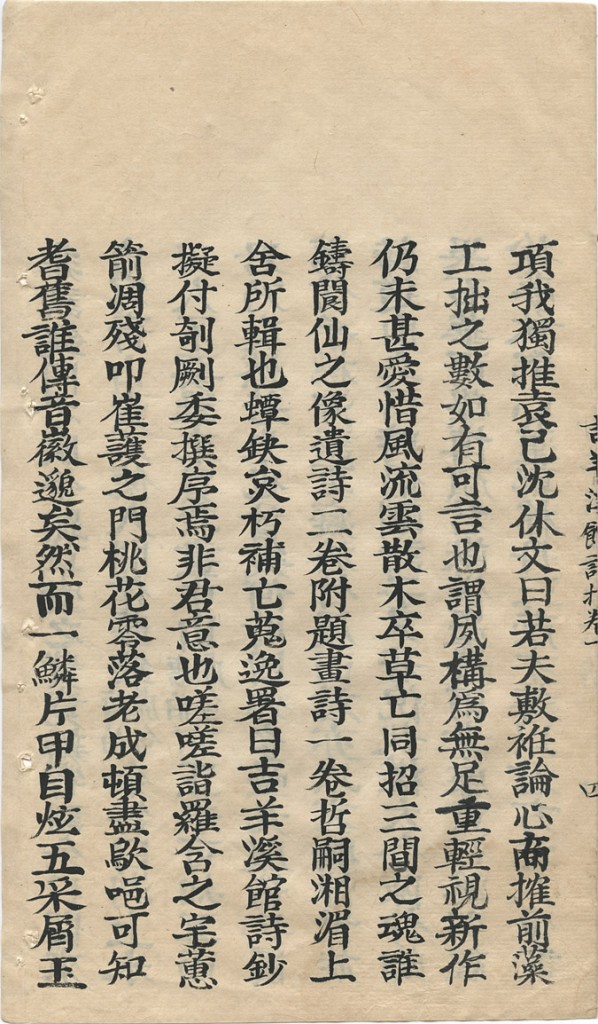 吉羊溪館詩抄卷一
四
項我獨推袁已沈休文曰若夫敷袵論心商搉前藻
工拙之數如有可言也謂夙構爲無足重輕視新作
仍未甚愛惜風流雲散木卒草亡同招三閭之魂誰
鑄閬仙之像遺詩二卷附題畫詩一卷哲嗣湘湄上
舍所輯也蟫缺炱朽補亡蒐逸署曰吉羊溪館詩鈔
擬付剞劂委撰序焉非君意也嗟嗟詣羅含之宅蕙
箭凋殘叩崔護之門桃花零落老成頓盡歔唈可知
耆舊誰傳音徽邈矣然而一鱗片甲自炫五采屑玉